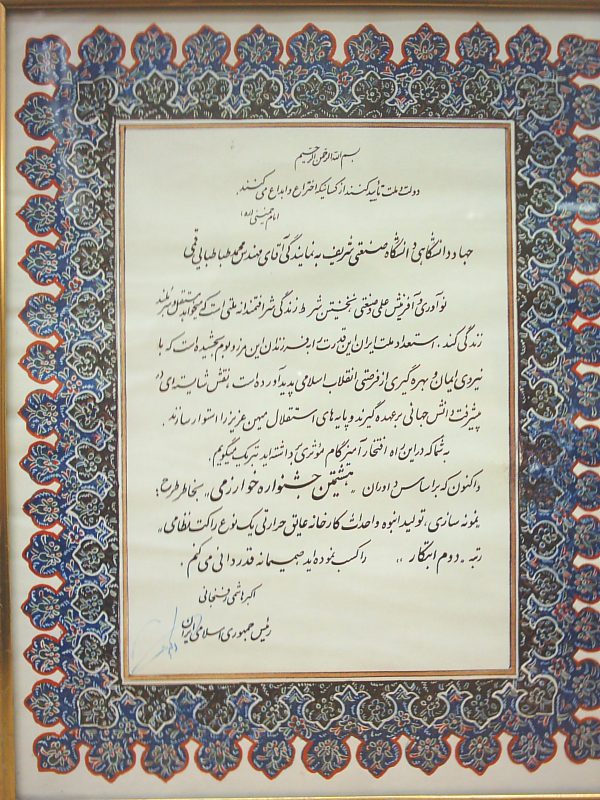 بسم الله الرحمن الرحیم
دولت و ملت تأیید کنند از کسانیکه اختراع و ابداع می کنند.
امام خمینی (ره)
جهاد دانشگاهی دانشگاه صنعتی شریف به نمایندگی آقای مهندس محمد طباطبایی قمی
نوآوری و آفرینش علمی و صنعتی نخستین شرط زندگی شرافتمندانه ملتی است که میخواهد مستقل و سربلند
زندگی کند. استعداد ملت ایران این قدرت را به فرزندان این مرز و بوم بخشیده است که با
نیروی ایمان و بهره گیری از فرصتی که انقلاب اسلامی پدید آورده است، نقش شایسته ای در
پیشرفت دانش جهانی بر عهده گیرند و پایه های استقلال میهن عزیز را استوار سازند.
به شما که در این راه افتخار آمیز گام مؤثری برداشته اید تبریک میگویم.
و اکنون که بر اساس داوران «هشتمین جشنواره خوارزمی» بخاطر طرح:
نمونه سازی، تولید انبوه و احداث کارخانه عایق حرارتی یک نوع راکت نظامی»
رتبه «دوم ابتکار» را کسب نموده اید صمیمانه قدردانی می کنم.
اکبر هاشمی رفسنجانی
رئیس جمهوری اسلامی ایران